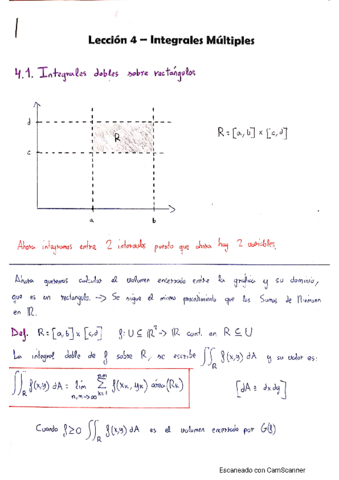 1
Lección 4 – Integrales Múltiples
4.1. Integrales dobles sobre rectángulos
d
R
R = [a, b] × [c, d]
c
a b
Ahora integramos entre 2 intervalos puesto que ahora hay 2 variables.
Ahora queremos calcular el volumen encerrado entre la gráfica y su dominio,
que es un rectángulo. --> Se sigue el mismo procedimiento que las Sumas de Riemann
en ℝ.
Def. R = [a, b] × [c, d] f: U ⊆ ℝ² -> ℝ cont. en R ⊆ U
La integral doble de f sobre R, se escribe ∬_R f(x,y) dA y su valor es:
∬_R f(x,y) dA = lim_{n,m→∞} ∑_{k=1}^{n·m} f(x_k, y_k) área(R_k) [dA ≡ dxdy]
Cuando f ≥ 0 ∬_R f(x,y) dA es el volumen encerrado por G(f)
Escaneado con CamScanner